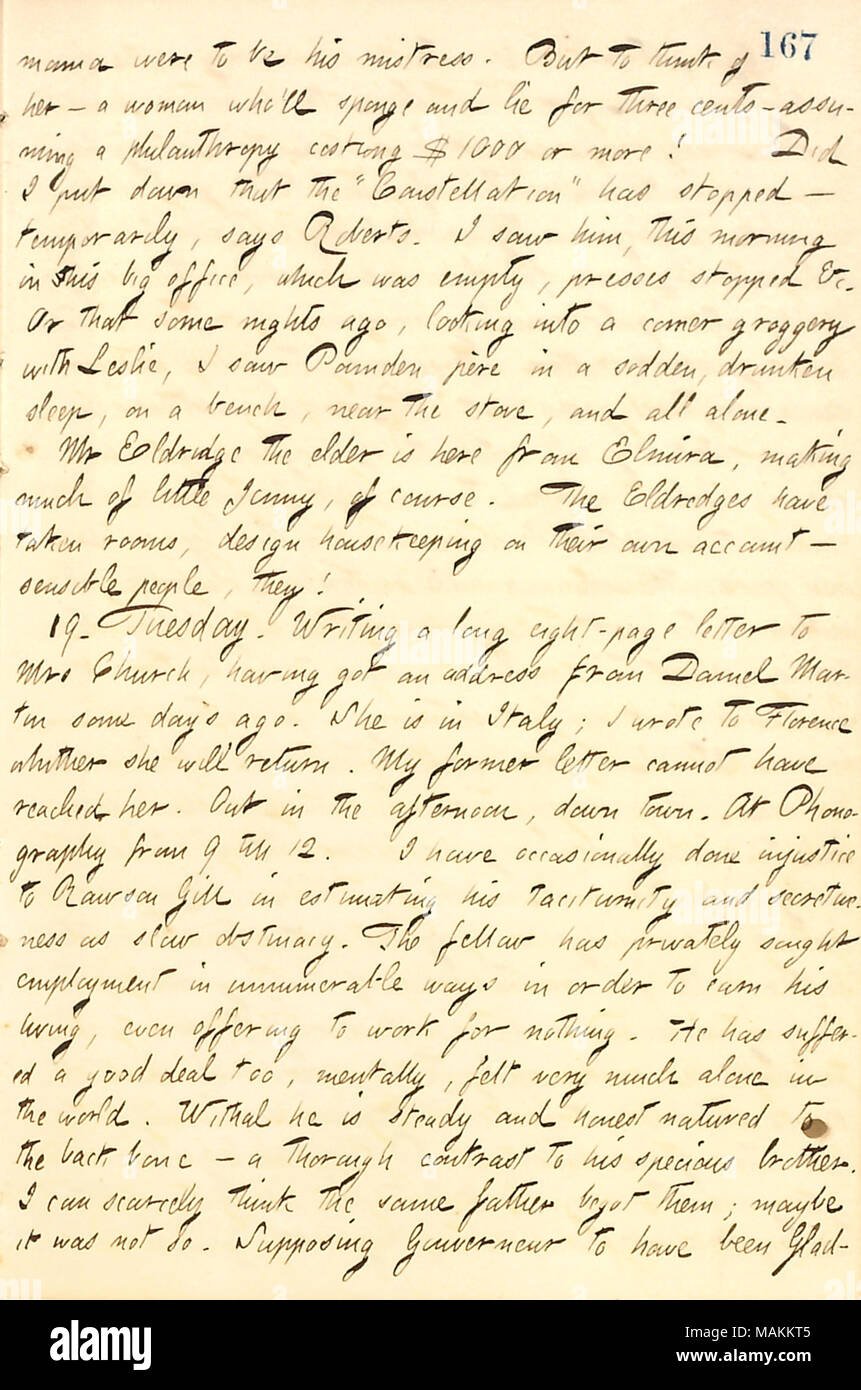 167
mama were to be his mistress. But to think of
her — a woman who'll sponge and lie for three cents — assu-
ming a philanthropy costing $1000 or more! Did
I put down that the "Constellation" has stopped —
temporarily, says Roberts. I saw him, this morning
in his big office, which was empty, presses stopped &c.
Or that some nights ago, looking into a corner groggery
with Leslie, I saw Pounden père in a sodden, drunken
sleep, on a bench, near the stove, and all alone.
Mr Eldredge the elder is here from Elmira, making
much of little Jenny, of course. The Eldredges have
taken rooms, design housekeeping on their own account —
sensible people, they!
19. Tuesday. Writing a long eight-page letter to
Mrs Church, having got an address from Damel Mar-
tin some days ago. She is in Italy; I wrote to Florence
whither she will return. My former letter cannot have
reached her. Out in the afternoon, down town. At Phono-
graphy from 9 till 12. I have occasionally done injustice
to Rawson Gill in estimating his taciturnity and secretive-
ness as slow obstinacy. The fellow has privately sought
employment in innumerable ways in order to earn his
living, even offering to work for nothing. He has suffer-
ed a good deal too, mentally, felt very much alone in
the world. Withal he is steady and honest natured to
the back bone — a thorough contrast to his specious brother.
I can scarcely think the same father begot them; maybe
it was not so. Supposing Gouverneur to have been Glad-
alamy
Image ID: MAKKT5
www.alamy.com